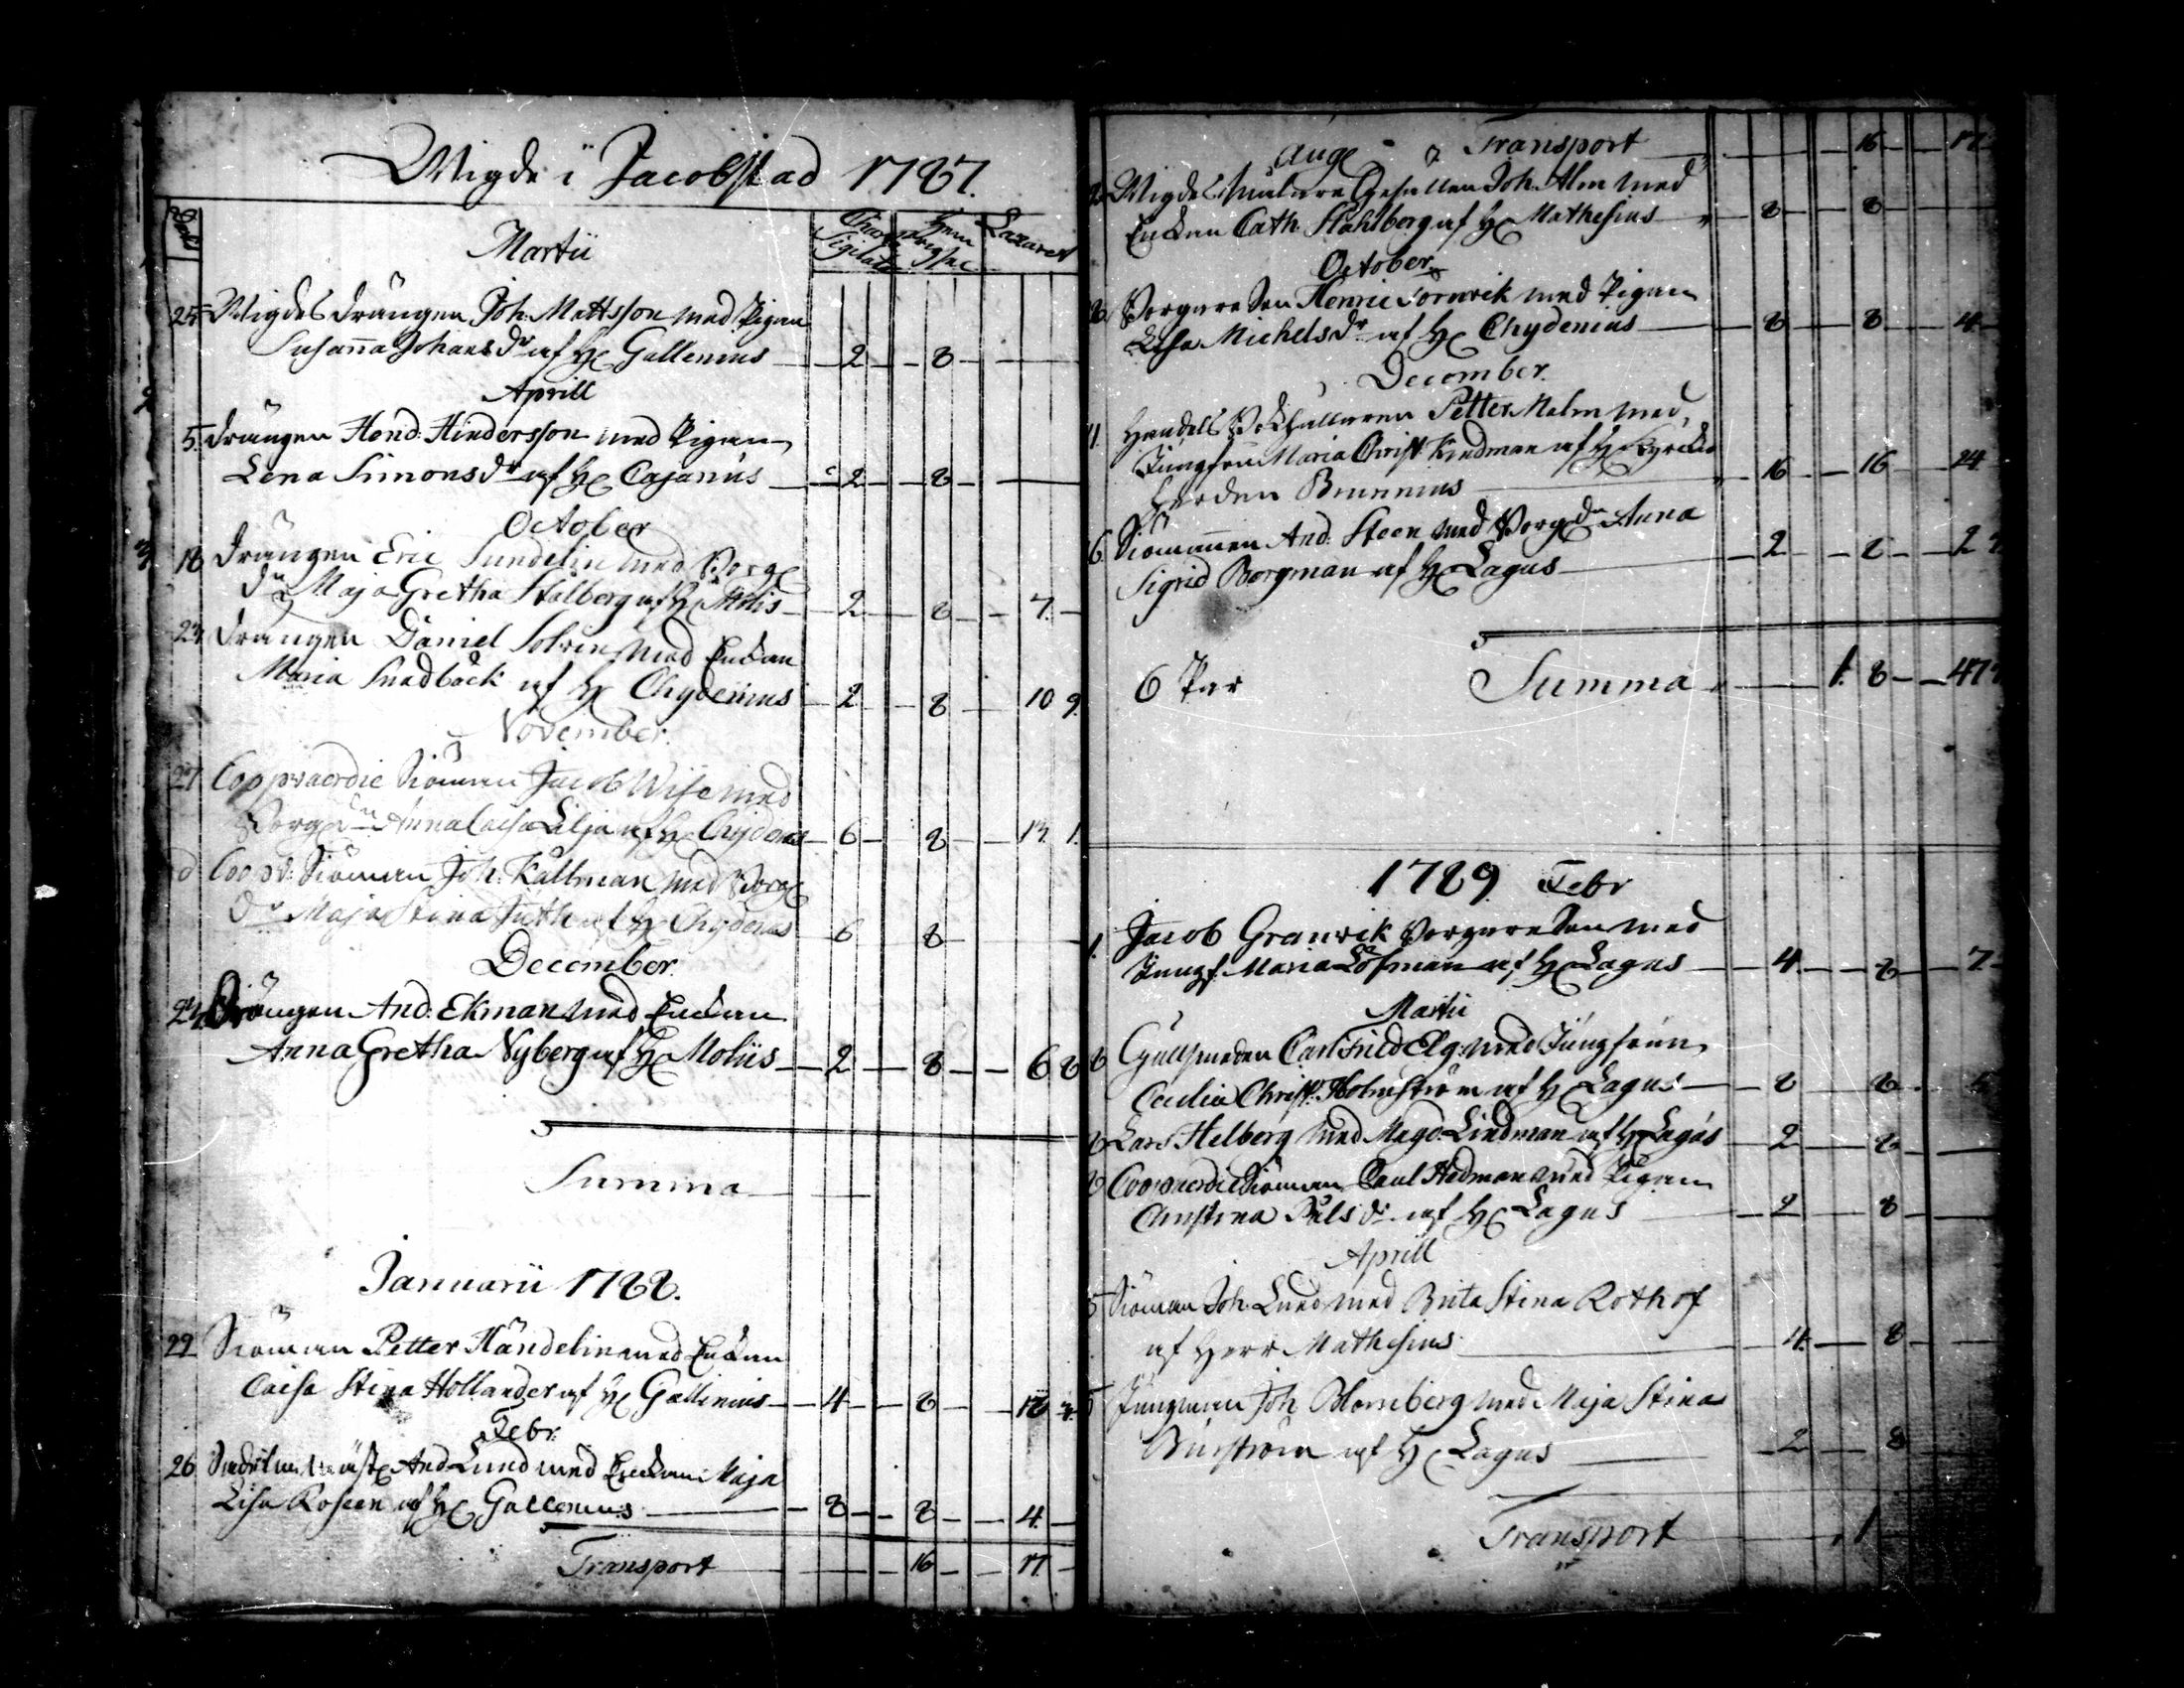 Wigde i Jacobstad 1787.
Charta Sigillata
Lazaret
Martii
25 Wigdes Drängen Joh. Mattsson med Pigan
Susanna Johansdr af H. Gallenius 2 8
Aprill
5. Drängen Hend. Hindersson med Pigan
Lena Simonsdr af H. Cajanus 2 8
October
18 Drängen Eric Sundelin med Borg.
dr Maja Gretha Stålberg af H. Moliis 2 8 7.
Drängen Daniel Solvin med Enckan
Maria Sundbäck af H. Chydenius 2 8 10 9.
November.
27 Coopvaerdie Siöman Jacob Wise med
Borg. dr Anna Caisa Lilja af H. Chydenius 6 8
d Coopv: Siöman Joh. Källman med Borg.
dr Maja Stina af H. Chydenius 6 8
December.
Drängen And. Ekman med Enckan
Anna Gretha Nyberg af H. Moliis 2 8 6 8
Summa
Januarii 1788.
29 Siöman Petter Händelin med Enckan
Caisa Stina Hollander af H. Gallenius 4 8
Febr.
26 And. Lund med Enckan Maja
Lisa Roseen af H. Gallenius 8 8 4.
Transport 16 17
Aug. Transport 16 17
Wigdes Målare Gesällen Joh. Alm med
Enckan Cath. Stahlberg af H. Mathesius 8 8
October.
Borgare Son Henric Tornvik med Pigan
Lisa Michelsdr af H. Chydenius 8 8 4
December.
11. Handels Bokhållaren Petter Malm med
Jungfru Maria Christ. Kindman af H. Kyrcko
Herden Brunnius 16 16 24
6 Siömannen And. Steen med Borg. dr Anna
Sigrid Borgman af H. Lagus 2 8 2
6 Par Summa 1. 8 47
1789. Febr
1. Jacob Granvik Borgare Son med
Jungf. Maria Löfman af H. Lagus 4. 8 7.
Martii
8 Carl Fried Elg med Jungfrun
Cecilia Christ. Holmström af H. Lagus 8 8
8 Lars Helberg med Magd. Lindman af H. Lagus 2 8
8 Coopvaerdie Siöman Paul Hedman med Pigan
Christina Pålsdr af H. Lagus 2 8
Aprill
5 Siöman Joh. Lund med Brita Stina Rothof
af Herr Mathesius 4. 8
5 Jungman Joh Blomberg med Maja Stina
af H. Lagus 2 8
Transport 1